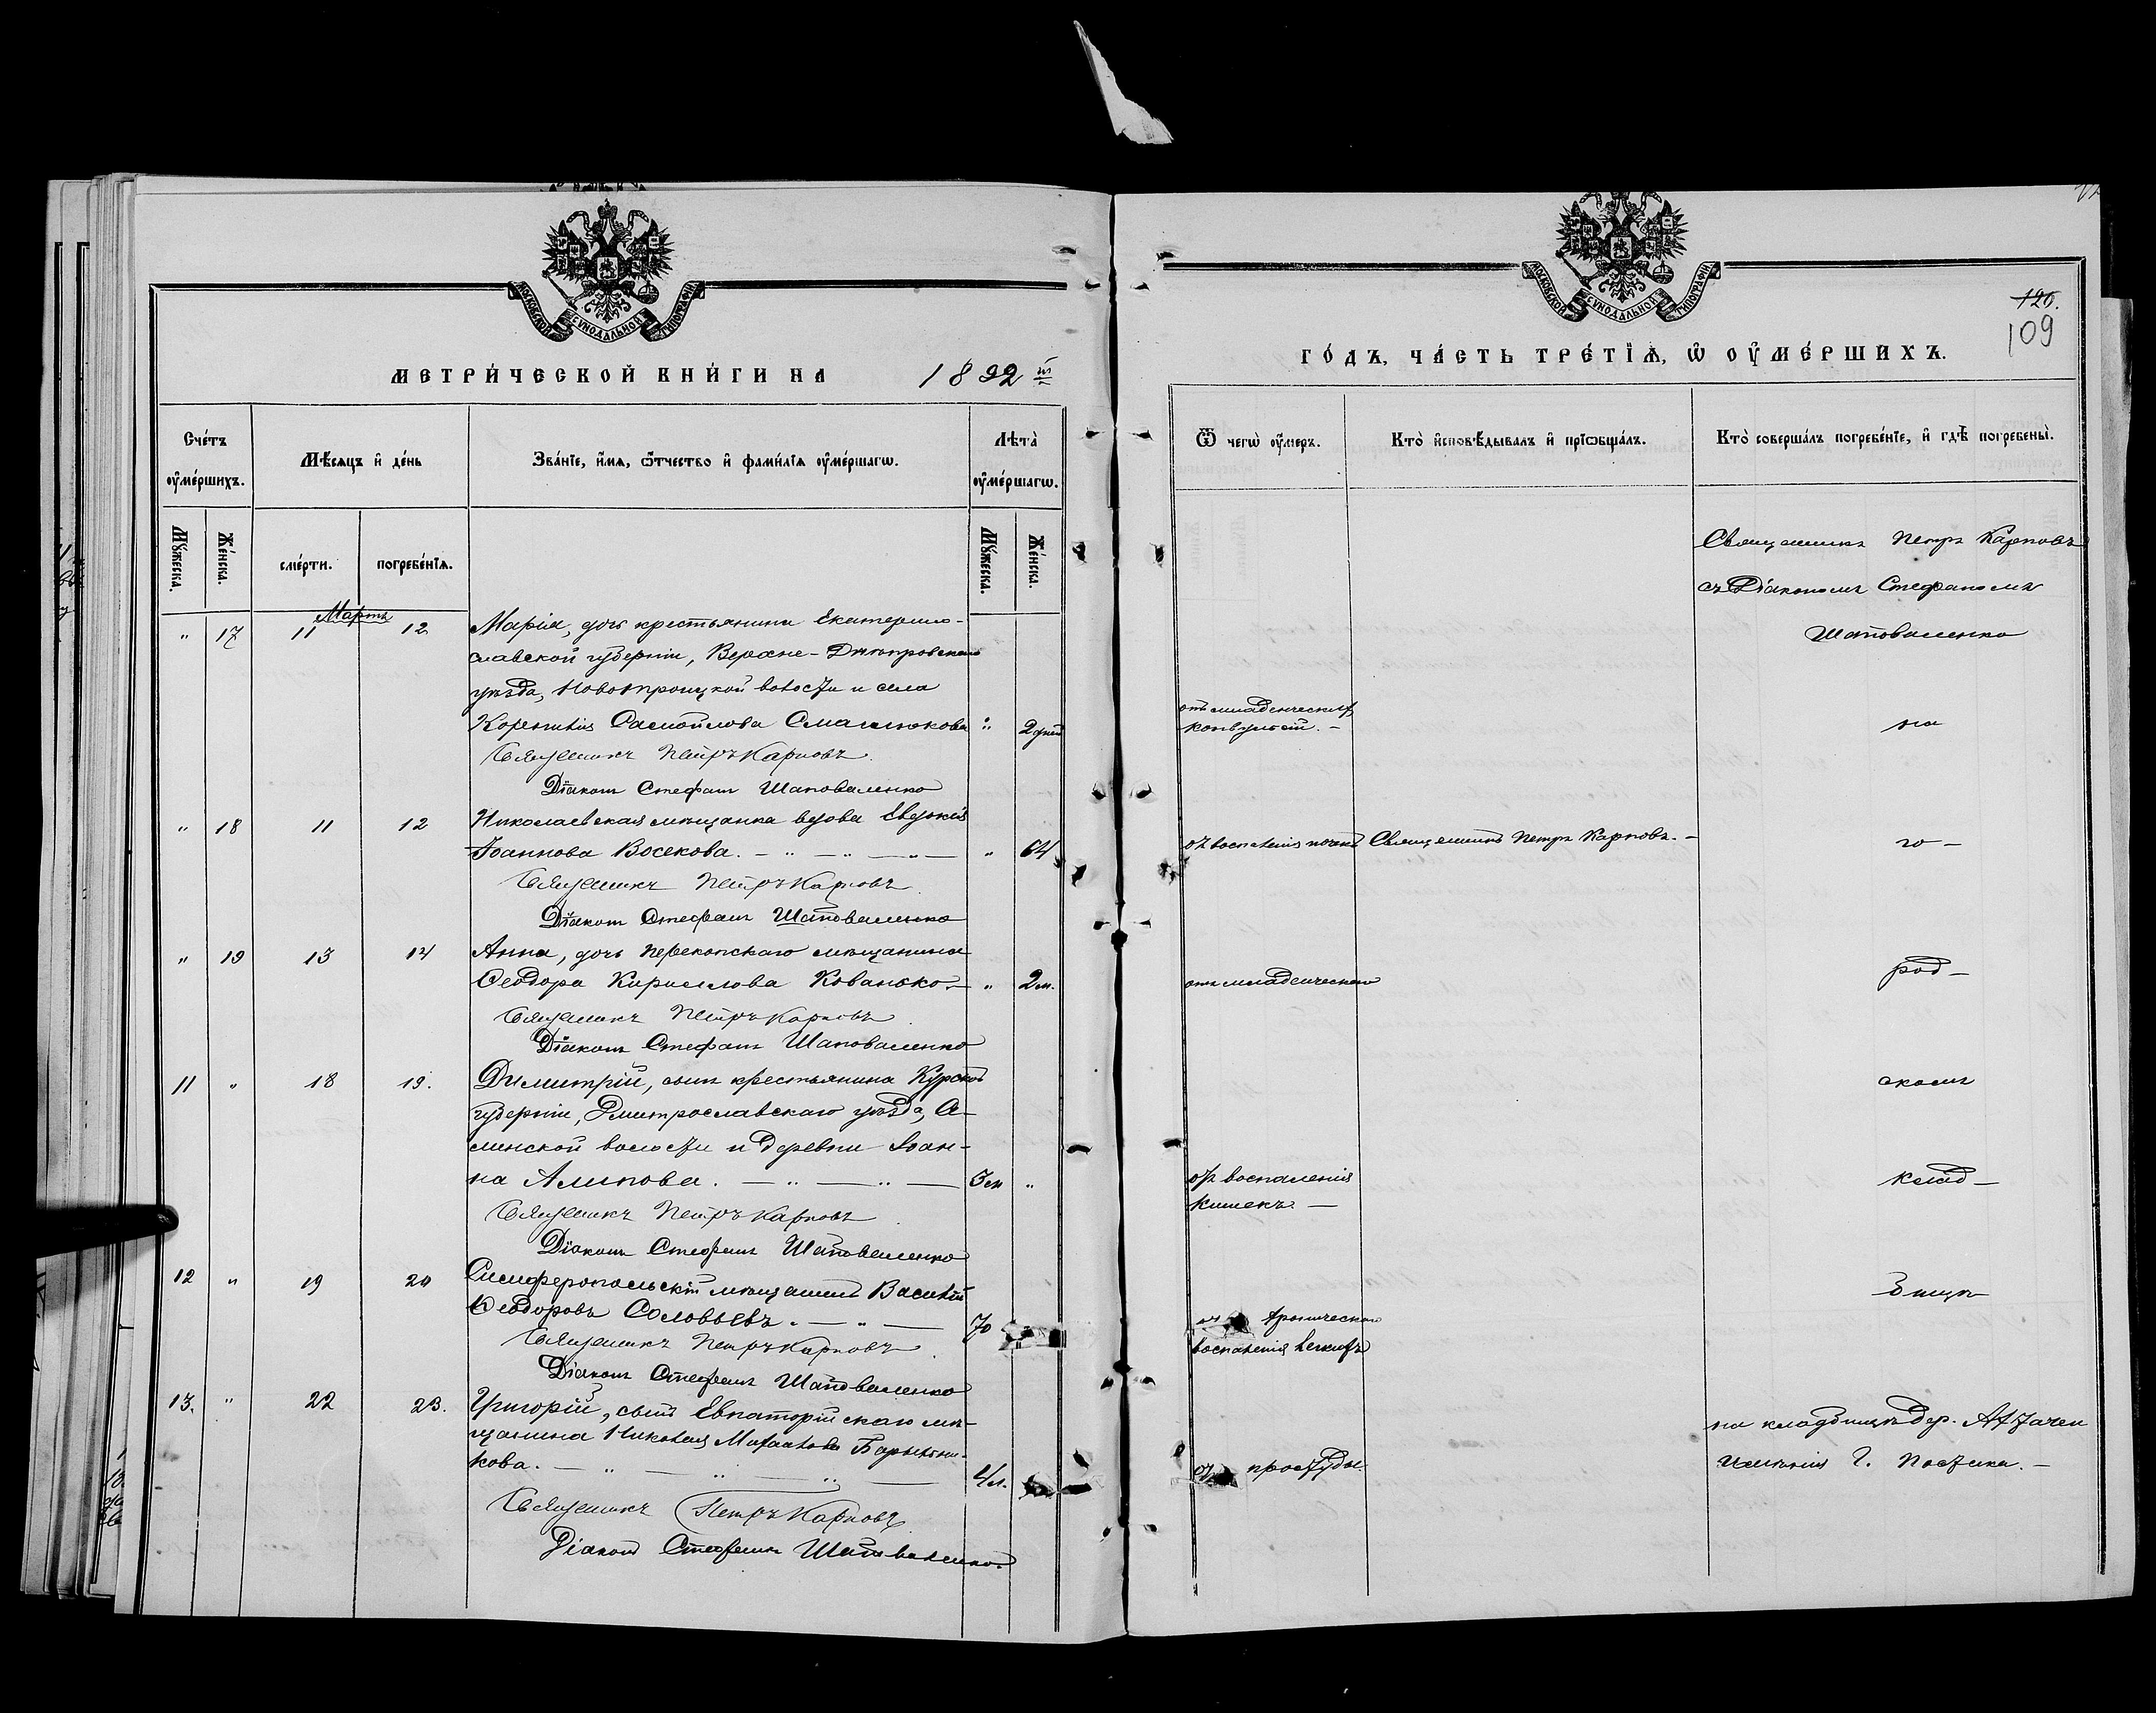 МОСКОВСКОЙ СУНОДАЛЬНОЙ ТИПОГРАФІИ
МЕТРИ́ЧЕСКОЙ КНИ́ГИ НА 1892 й
Сче́тъ ᲂу҆ме́ршихъ.
Мѣ́сяцъ и҆ де́нь
Зва́нїе, и҆́мѧ, ѻ҆́тчество и҆ фами́лїѧ ᲂу҆ме́ршагѡ.
Лѣта̀ ᲂу҆ме́ршагѡ.
Мꙋ́жеска.
Же́нска.
сме́рти.
погребе́нїѧ.
Мꙋ́жеска.
Же́нска.
Мартъ
" 17 11 12 Марія, дочь крестьянина Екатерино-
славской губерніи, Верхне-Днѣпровскаго
уѣзда, Новотроицкой волости и села
Корнилія Самойлова Смаглюкова " 2 дней
Священникъ Петръ Карповъ.
Діаконъ Стефанъ Шаповаленко
" 18 11 12 Николаевская мѣщанка вдова Евдокія
Іоаннова Восекова. — " — " — " — " 64
Священникъ Петръ Карповъ.
Діаконъ Стефанъ Шаповаленко
" 19 13 14 Анна, дочь Перекопскаго мѣщанина
Ѳеодора Кириллова Кованько. — " 2 м.
Священникъ Петръ Карповъ.
Діаконъ Стефанъ Шаповаленко
11 " 18 19. Димитрій, сынъ крестьянина Курской
губерніи, Дмитрославскаго уѣзда, А-
линской волости и деревни Іоан-
на Алипова. — " — " — 3 м "
Священникъ Петръ Карповъ.
Діаконъ Стефанъ Шаповаленко
12 " 19 20 Симферопольскій мѣщанинъ Василій
Ѳеодоровъ Соловьевъ. — " — 70
Священникъ Петръ Карповъ.
Діаконъ Стефанъ Шаповаленко
13. " 22 23. Григорій, сынъ Евпаторійскаго мѣ-
щанина Николая Михайлова
кова. — " — " — " — 4 м.
Священникъ Петръ Карповъ
Діаконъ Стефанъ Шаповаленко.
МОСКОВСКОЙ СУНОДАЛЬНОЙ ТИПОГРАФІИ
120.
109
ГО́ДЪ, ЧА́СТЬ ТРЕ́ТЇѦ, Ѡ҆ ОУ҆МЕ́РШИХЪ.
Ѿ чегѡ̀ ᲂу҆́меръ.
Кто̀ и҆сповѣ́дывалъ и҆ прїѡбща́лъ.
Кто̀ соверша́лъ погребе́нїе, и҆ гдѣ̀ погребены̀.
Священникъ Петръ Карповъ
съ Діакономъ Стефаномъ
Шаповаленко
отъ младенческихъ
конвульсій. —
на
отъ воспаленія почекъ Священникъ Петръ Карповъ. —
го —
отъ младенческаго
род —
скомъ
отъ воспаленія
кишекъ. —
клад —
бищѣ
отъ хроническаго
воспаленія легкихъ
на кладбищѣ дер.
имѣнія Г.
отъ простуды.